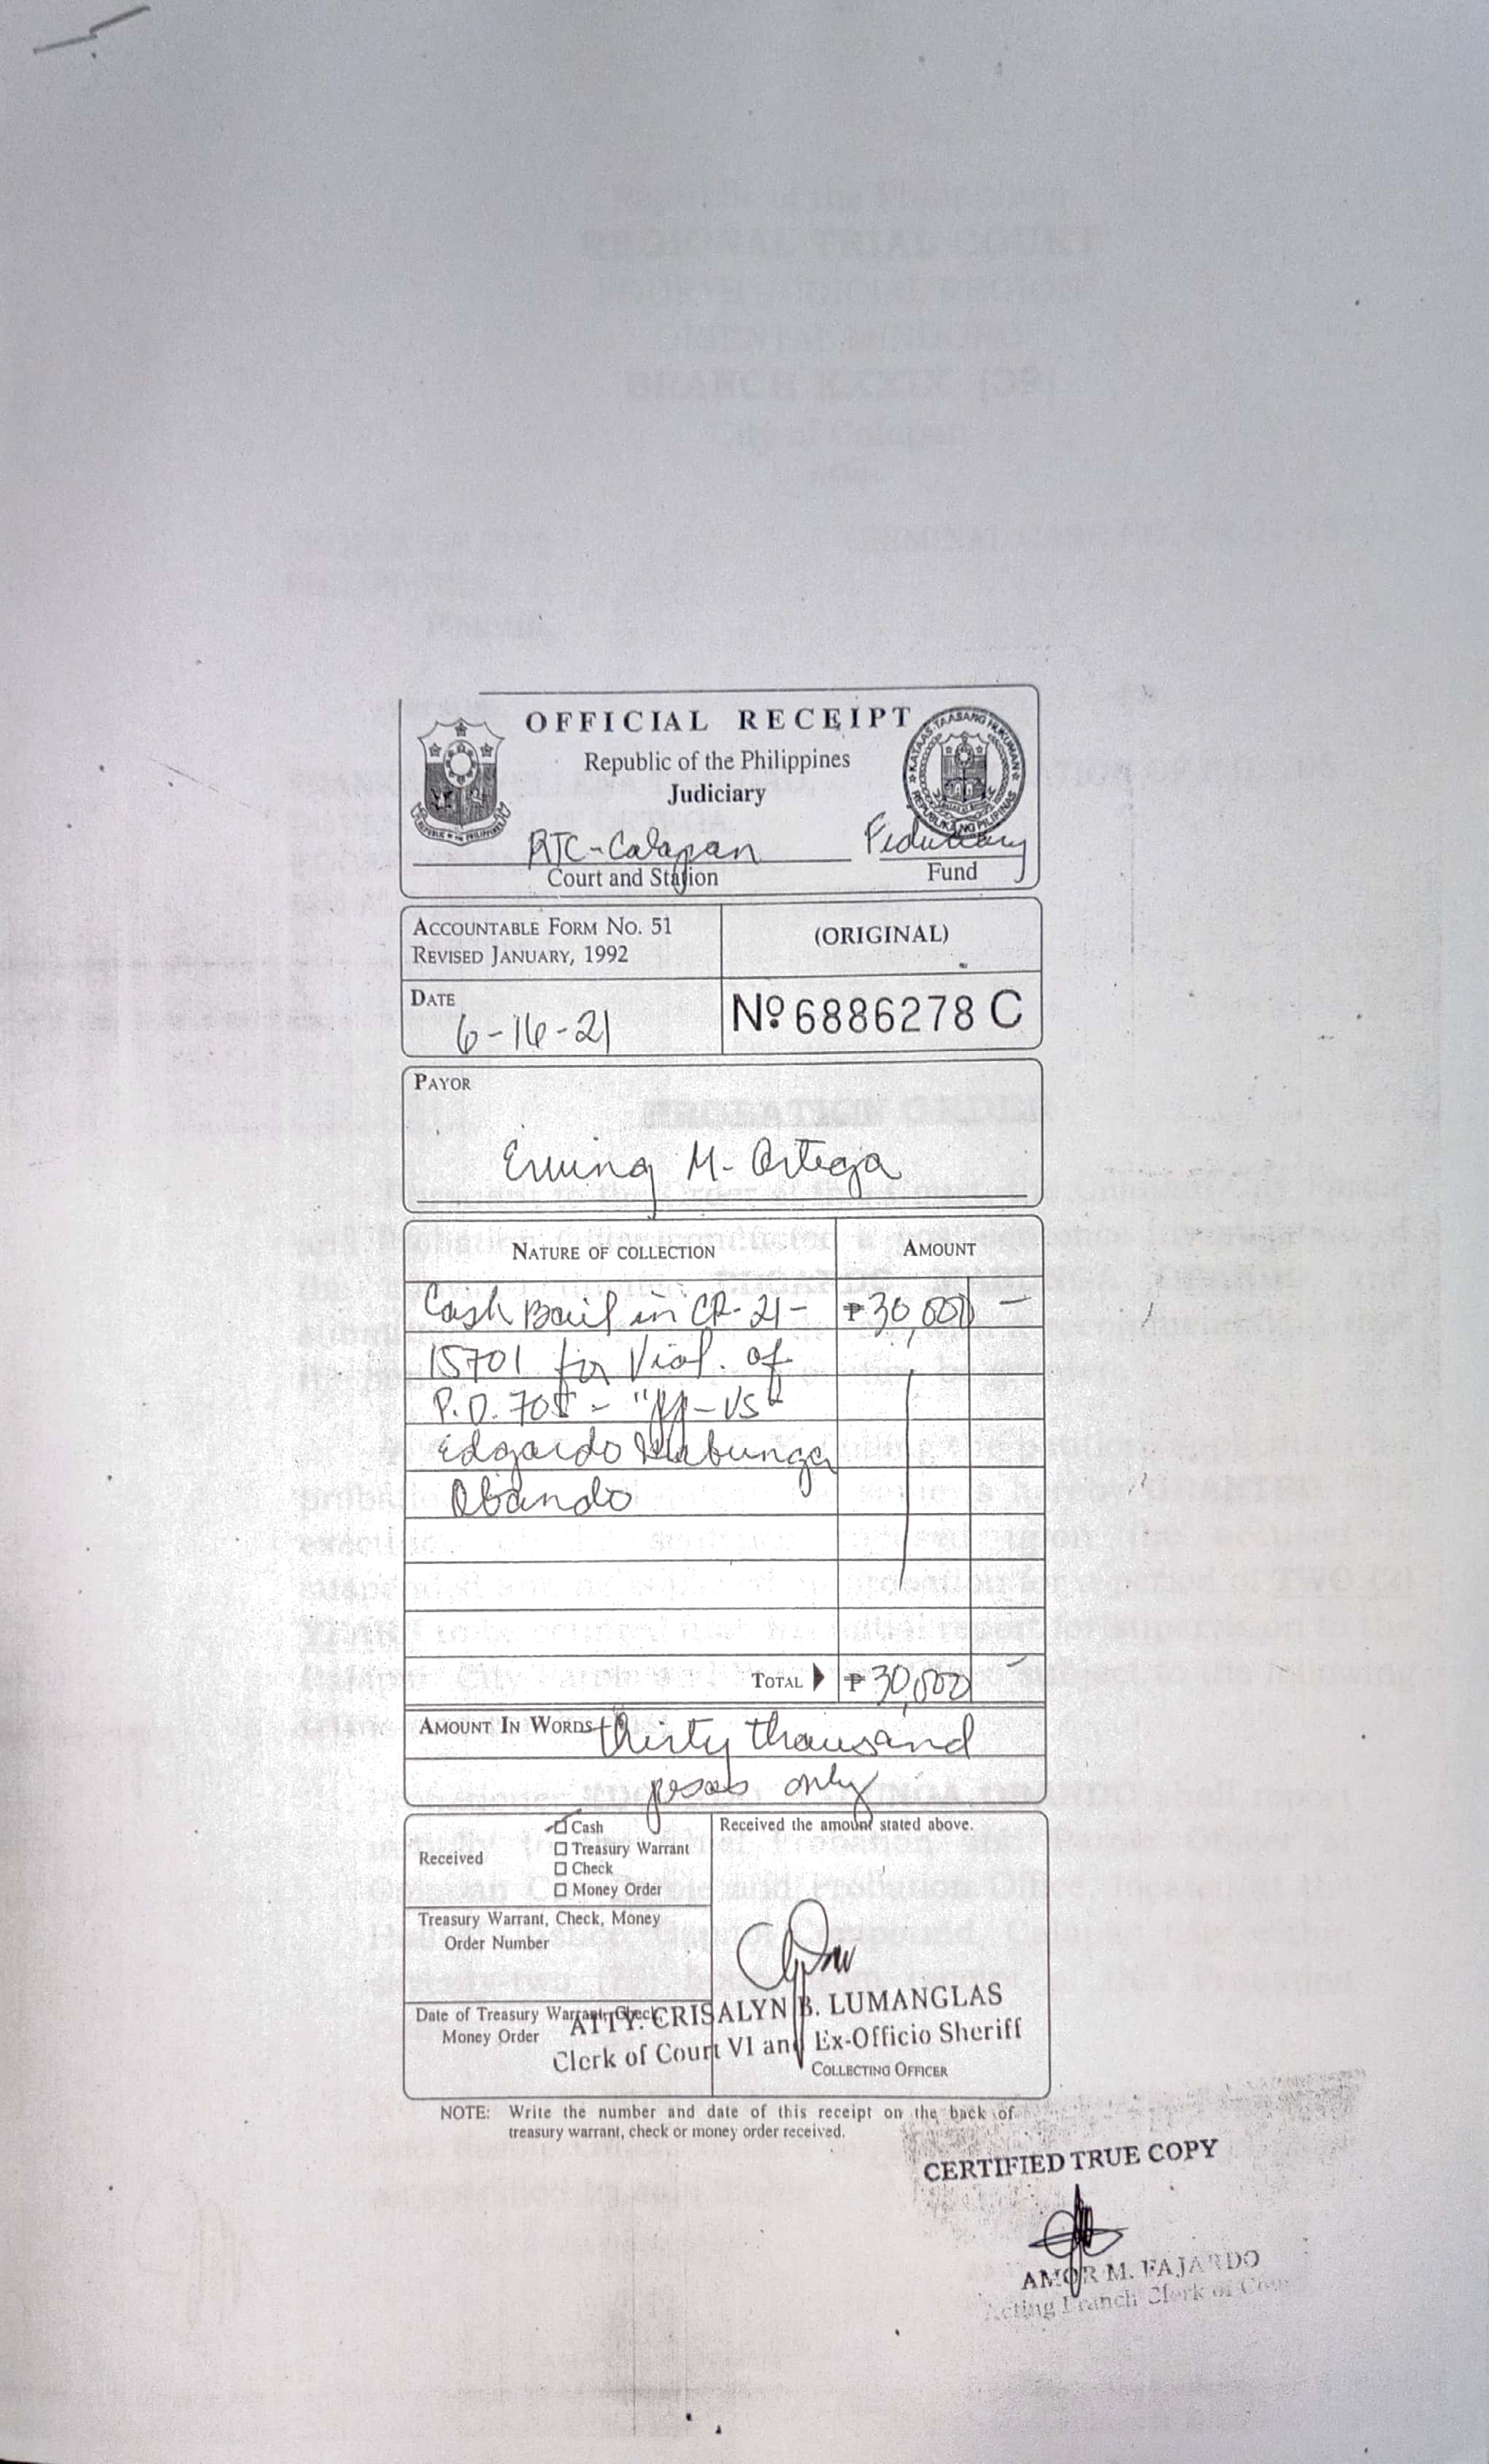 OFFICIAL RECEIPT
Republic of the Philippines
Judiciary
KATAAS-TAASANG HUKUMAN
REPUBLIKA NG PILIPINAS
RTC-Calapan
Fiduciary
Court and Station
Fund
ACCOUNTABLE FORM NO. 51
REVISED JANUARY, 1992
(ORIGINAL)
DATE
6-16-21
Nº 6886278 C
PAYOR
Erwing M. Ortega
NATURE OF COLLECTION
AMOUNT
Cash Bail in CR-21- ₱30,000 -
15701 for Viol. of
P.D. 705 - "PP-VS"
Edgardo Ilabunga
Obando
TOTAL ₱30,000 -
AMOUNT IN WORDS thirty thousand
pesos only
Received
Cash
Treasury Warrant
Check
Money Order
Received the amount stated above.
Treasury Warrant, Check, Money
Order Number
Date of Treasury Warrant, Check,
Money Order
ATTY. CRISALYN B. LUMANGLAS
Clerk of Court VI and Ex-Officio Sheriff
COLLECTING OFFICER
NOTE: Write the number and date of this receipt on the back of
treasury warrant, check or money order received.
CERTIFIED TRUE COPY
AMOR M. FAJARDO
Acting Branch Clerk of Court